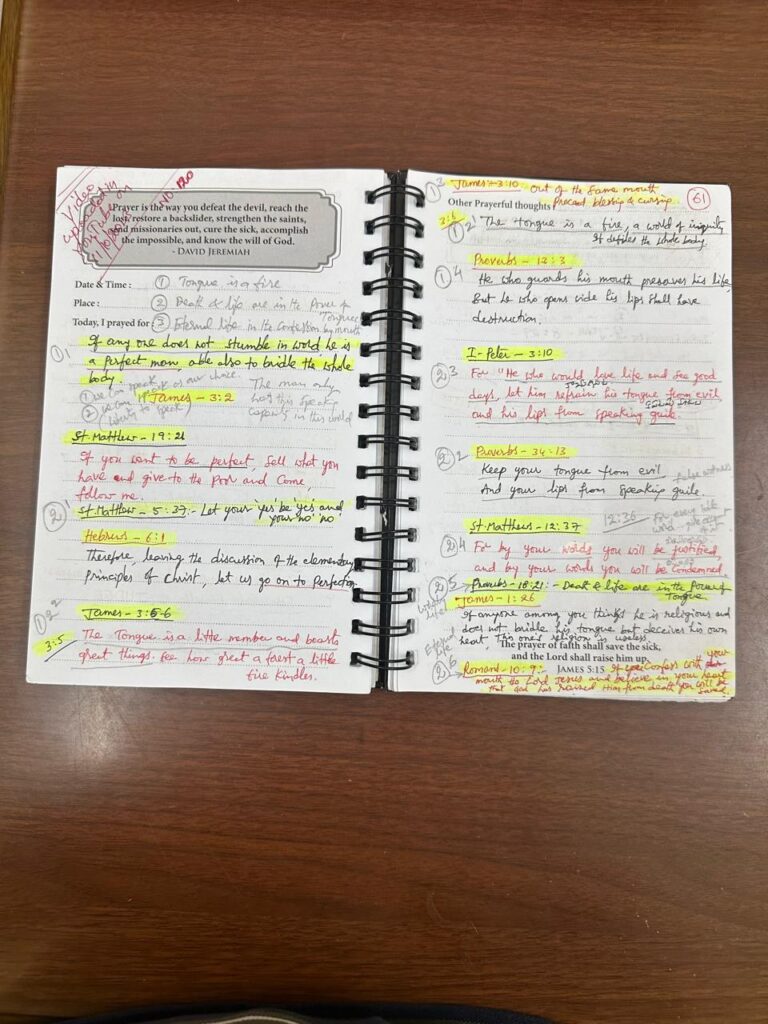 Video
on
Prayer is the way you defeat the devil, reach the
lost, restore a backslider, strengthen the saints,
send missionaries out, cure the sick, accomplish
the impossible, and know the will of God.
- DAVID JEREMIAH
Date & Time : ① Tongue is a fire
Place : ② Death & life are in the Power of
Tongue
Today, I prayed for : ③ Eternal life in the Confession by mouth
① If any one does not stumble in word he is
a perfect man, able also to bridle the whole
body.
① we can speak
② we can speak as our choice
(liberty to speak)
The man only
has this speaking
capacity in this world
James - 3:2
St Matthew - 19:21
If you want to be perfect, Sell what you
have and give to the Poor and Come,
follow me.
② St. Matthew - 5:37 :- Let your 'yes' be 'yes' and
your 'no' 'no'.
Hebrews - 6:1
Therefore, leaving the discussion of the elementary
principles of Christ, let us go on to Perfection
①2 James - 3:5-6
3:5
The Tongue is a little member and boasts
great things. See how great a forest a little
fire kindles.
①3 James - 3:10 Out of the same mouth
Other Prayerful thoughts : Proceed blessing & cursing
61
3:6
①2 "The tongue is a fire, a world of iniquity
It defiles the whole body.
Proverbs - 13:3
①4 He who guards his mouth preserves his life,
But he who opens wide his lips shall have
destruction.
I - Peter - 3:10
②3 For "He who would love life and see good
days, let him refrain his tongue from evil
and his lips from speaking guile.
Proverbs - 34:13
②2 Keep your tongue from evil
And your lips from speaking guile.
false witness
St Matthew - 12:37
12:36
for every idle
word
②4 For by your words you will be justified,
and by your words you will be condemned.
②5 Proverbs - 18:21 :- Death & life are in the Power of
Tongue
James - 1:26
If anyone among you thinks he is religious and
does not bridle his tongue but deceives his own
heart, This one's religion is useless
Eternal
life
The prayer of faith shall save the sick,
and the Lord shall raise him up.
JAMES 5:15
②6 Romans - 10:9 :- If you Confess with your
mouth the Lord Jesus and believe in your heart
that God has raised Him from death you will be
Saved.